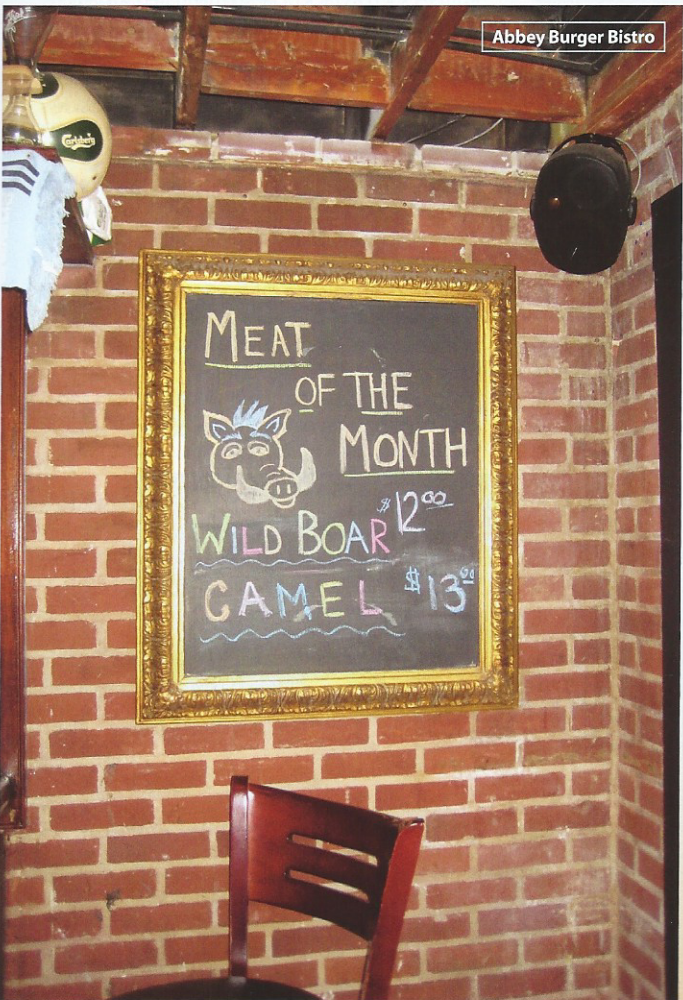 Abbey Burger Bistro
Carlsberg
MEAT
OF THE
MONTH
WILD BOAR $12.00
CAMEL $13.00